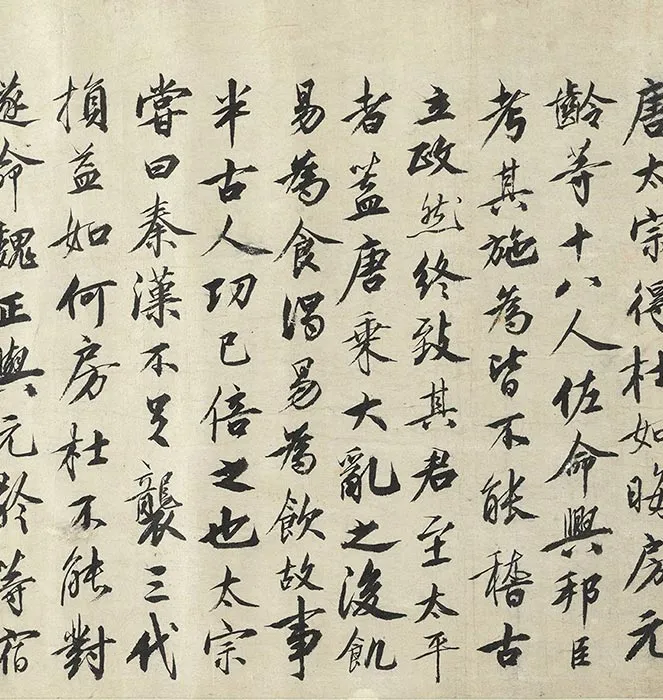 唐太宗得杜如晦房元
齡等十八人佐命興邦臣
考其施為皆不能稽古
立政然終致其君至太平
者蓋唐乘大亂之後飢
易為食渴易為飲故事
半古人功已倍之也太宗
嘗曰秦漢不足襲三代
損益如何房杜不能對
遂命魏正與元齡等宿